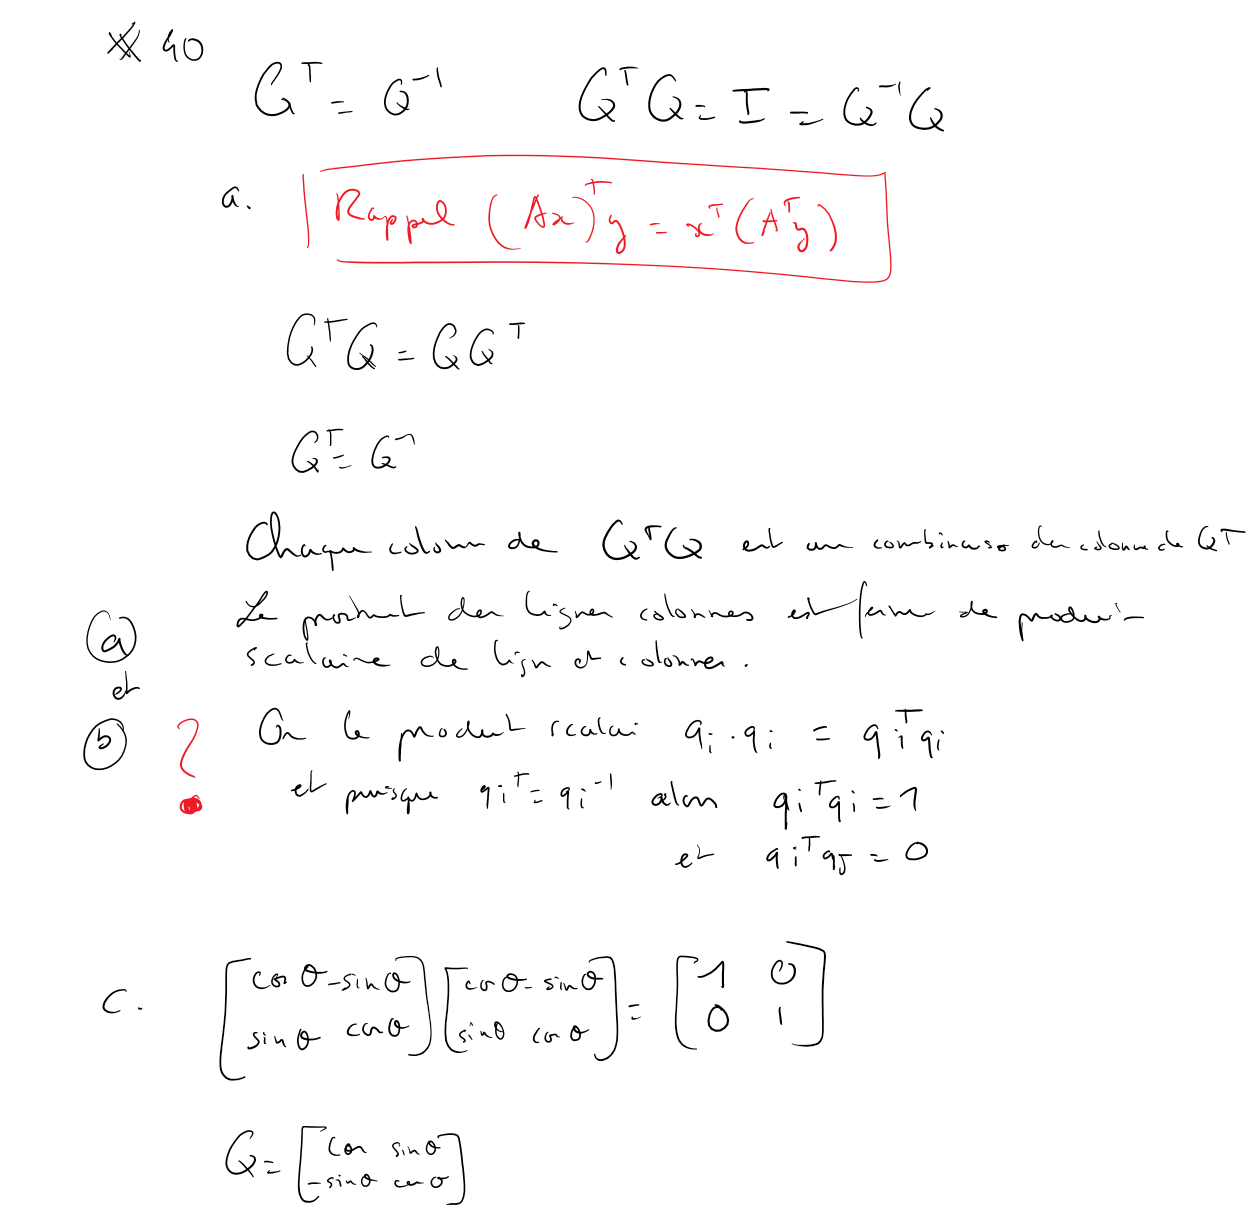 40
Q^T = Q^-1    Q^T Q = I = Q^-1 Q
a. Rappel (Ax)^T y = x^T (A^T y)
Q^T Q = Q Q^T
Q^T = Q^-1
Chaque colonne de Q^T Q est une combinaiso des colonne de Q^T
Le produit des lignes colonnes est forme de produi
scalaire de lign et colonnes.
(a)
et
(b) ? On le produit scalai q_i . q_i = q_i^T q_i
et puisque q_i^T = q_i^-1 alors q_i^T q_i = 1
et q_i^T q_J = 0
C. [cos θ -sin θ; sin θ cos θ] [cos θ - sin θ; sin θ cos θ] = [1 0; 0 1]
Q = [cos sin θ; -sin θ cos θ]